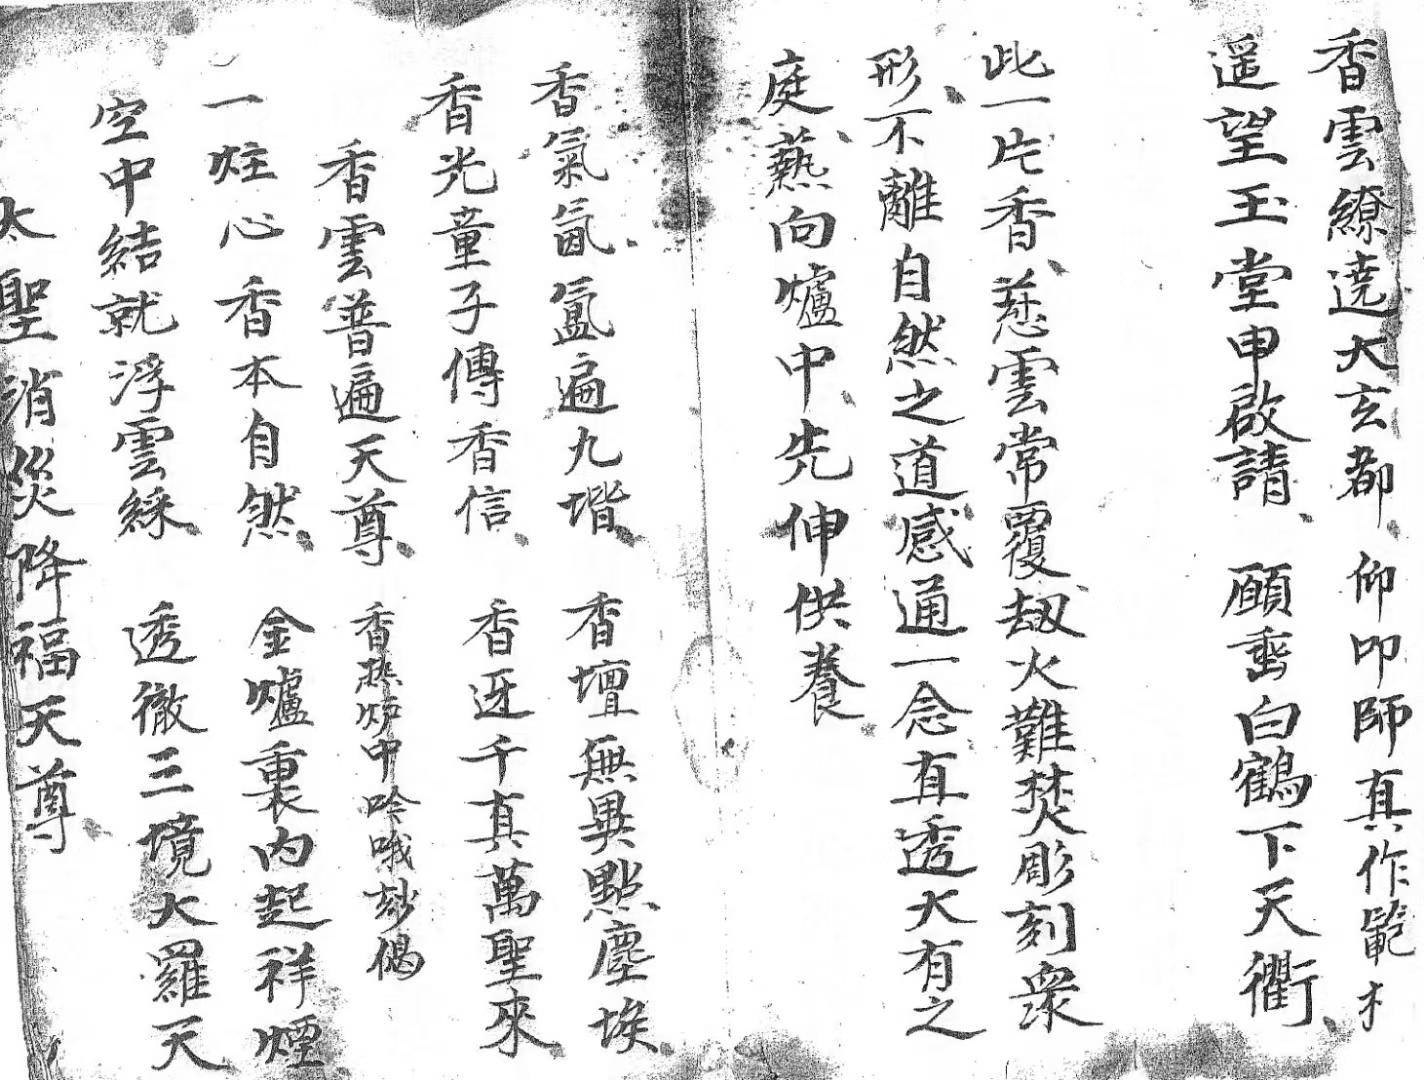 香雲繚遶大玄都　仰叩師真作範
遥望玉堂申啟請　願垂白鶴下天衢
此一片香慈雲常覆劫火難焚彫刻衆
形不離自然之道感通一念直透大有之
庭爇向爐中先伸供養
香氣氤氳遍九堦　香壇無異點塵埃
香光童子傳香信　香迓千真萬聖來
香雲普遍天尊　香热炉中吟哦玅偈
一炷心香本自然　金爐裏内起祥煙
空中結就浮雲綵　透徹三境大羅天
大聖消災降福天尊